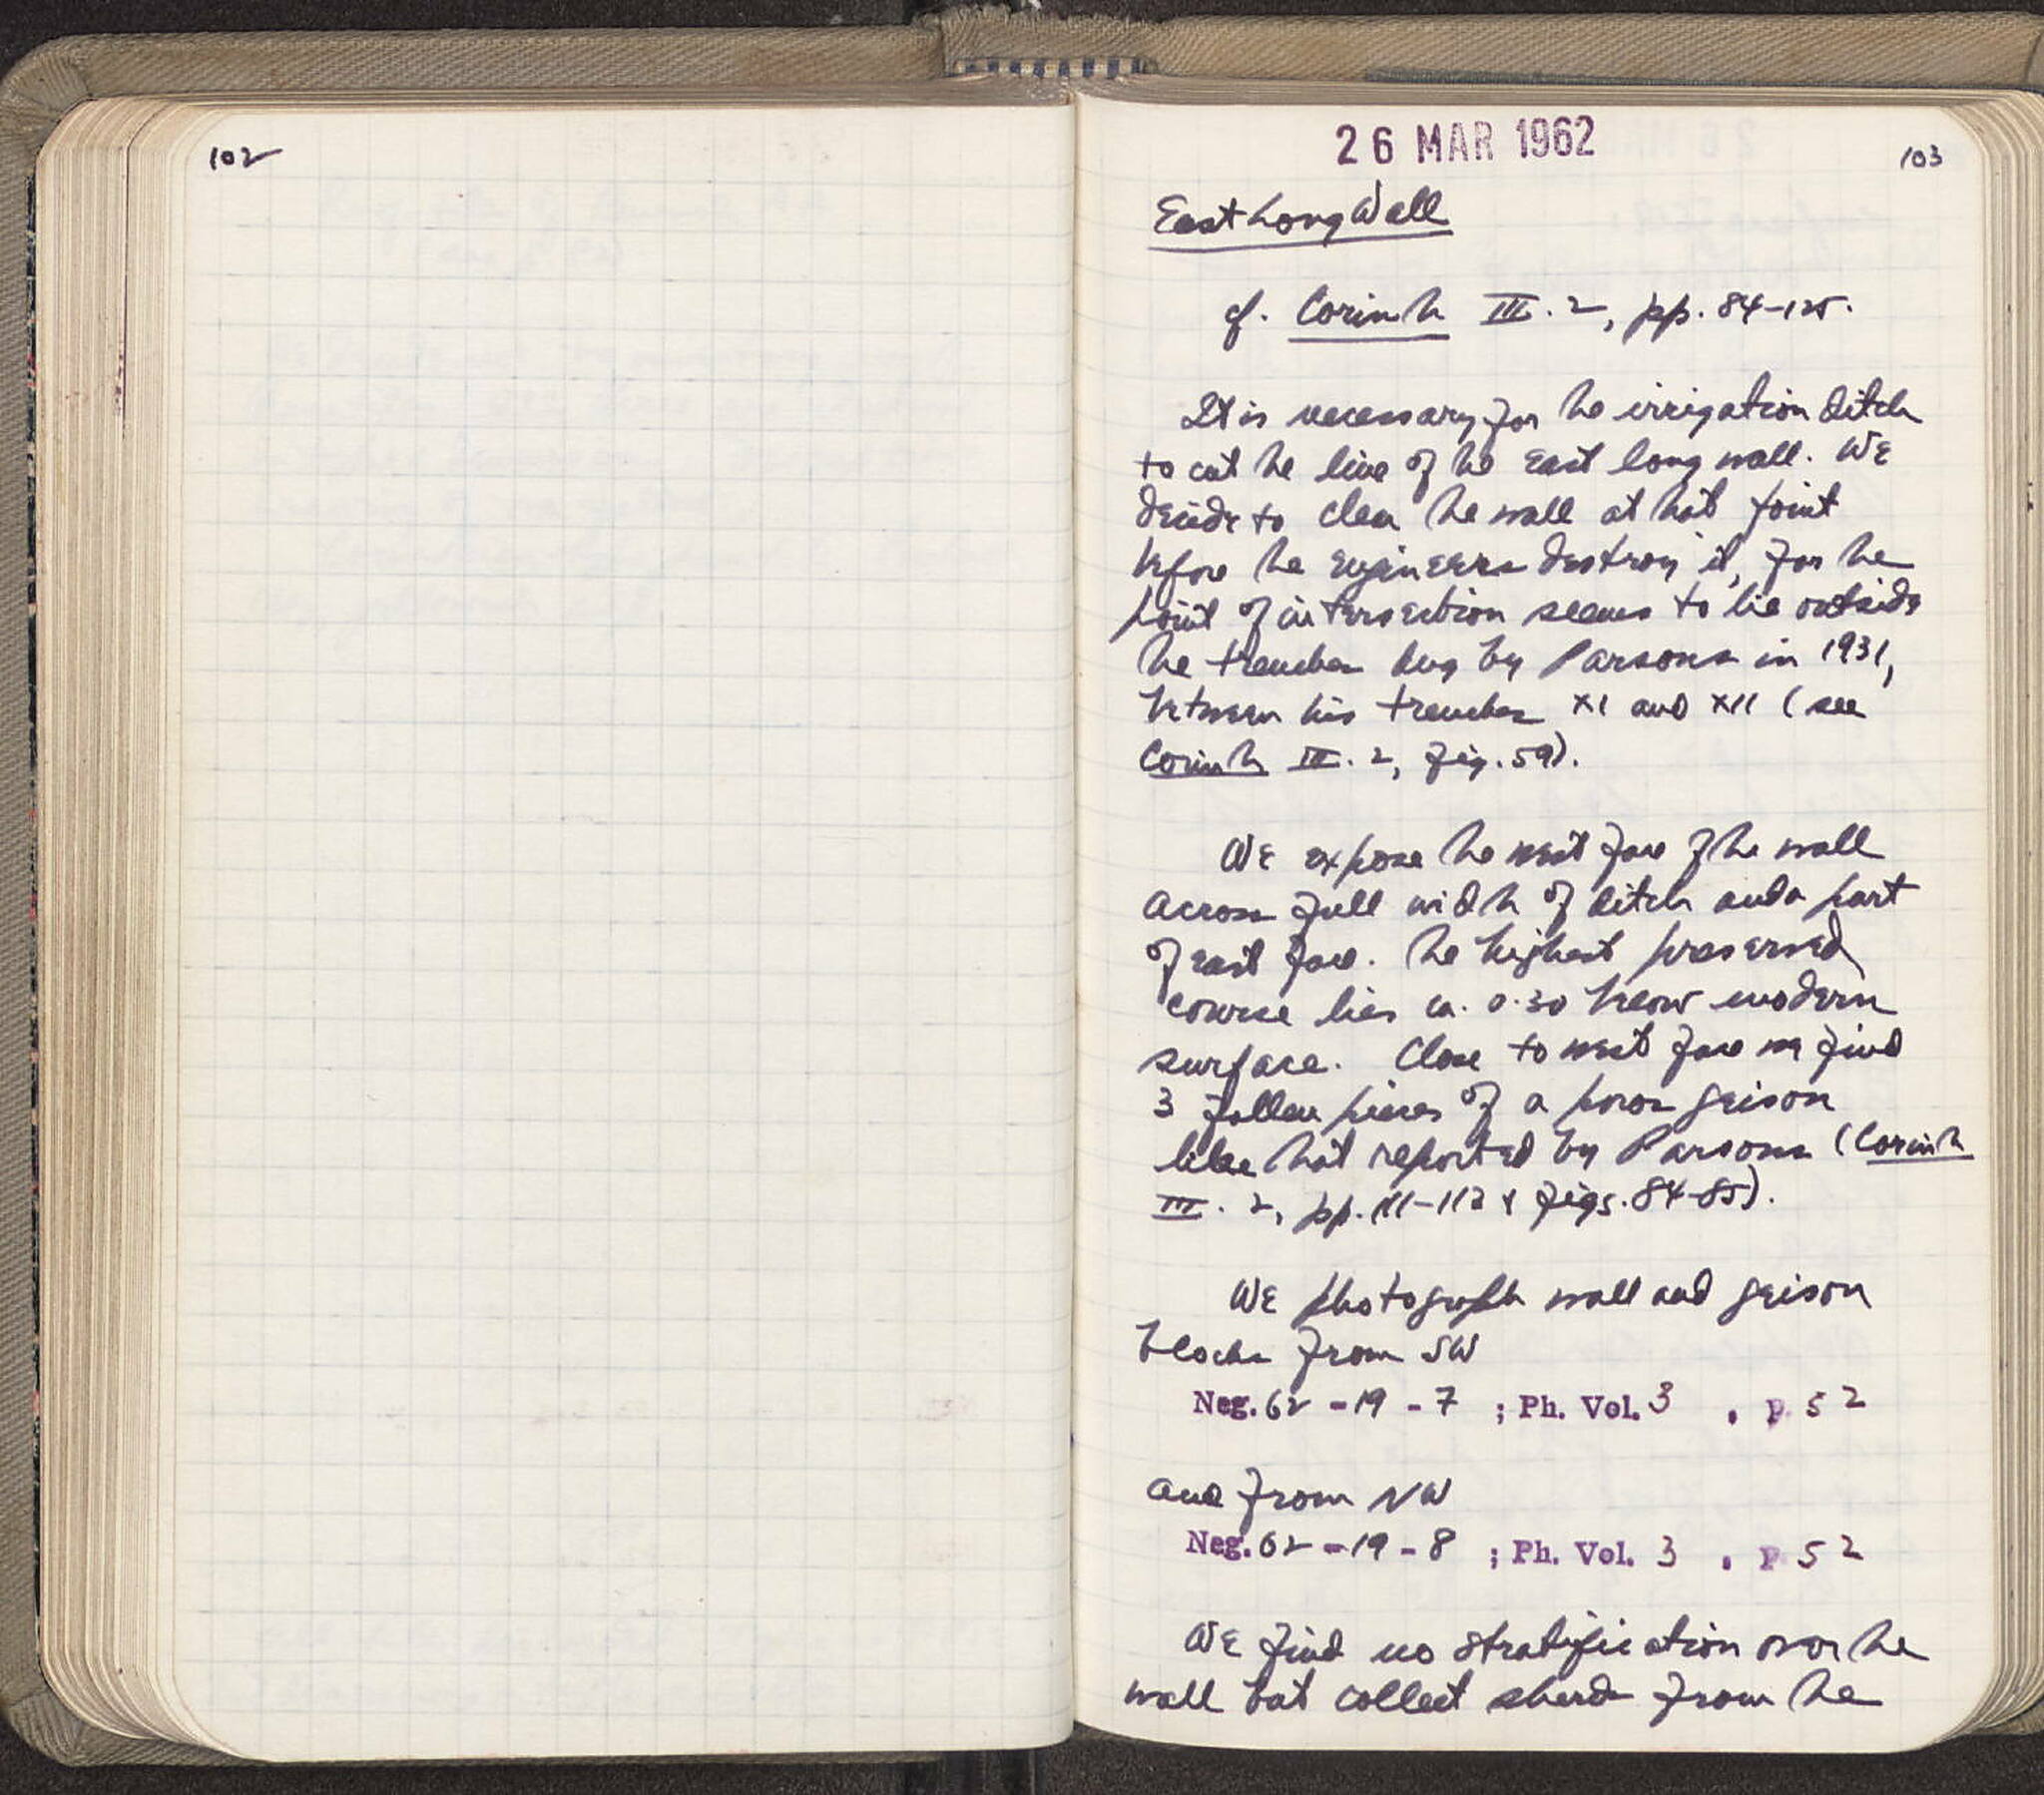 102
26 MAR 1962
103
East Long Wall
cf. Corinth III.2, pp. 84-125.
It is necessary for the irrigation ditch
to cut the line of the East long wall. We
decide to clear the wall at that point
before the engineers destroy it, for the
point of intersection seems to lie outside
the trenches dug by Parsons in 1931,
between his trenches XI and XII (see
Corinth III.2, fig. 59).
We expose the west face of the wall
across full width of ditch and a part
of east face. The highest preserved
course lies ca. 0.30 below modern
surface. Close to west face we find
3 fallen pieces of a poros geison
like that reported by Parsons (Corinth
III.2, pp. 111-112 & figs. 84-85).
We photograph wall and geison
blocks from SW
Neg. 62-19-7 ; Ph. Vol. 3 , p. 52
and from NW
Neg. 62-19-8 ; Ph. Vol. 3 , p. 52
We find no stratification over the
wall but collect sherds from the